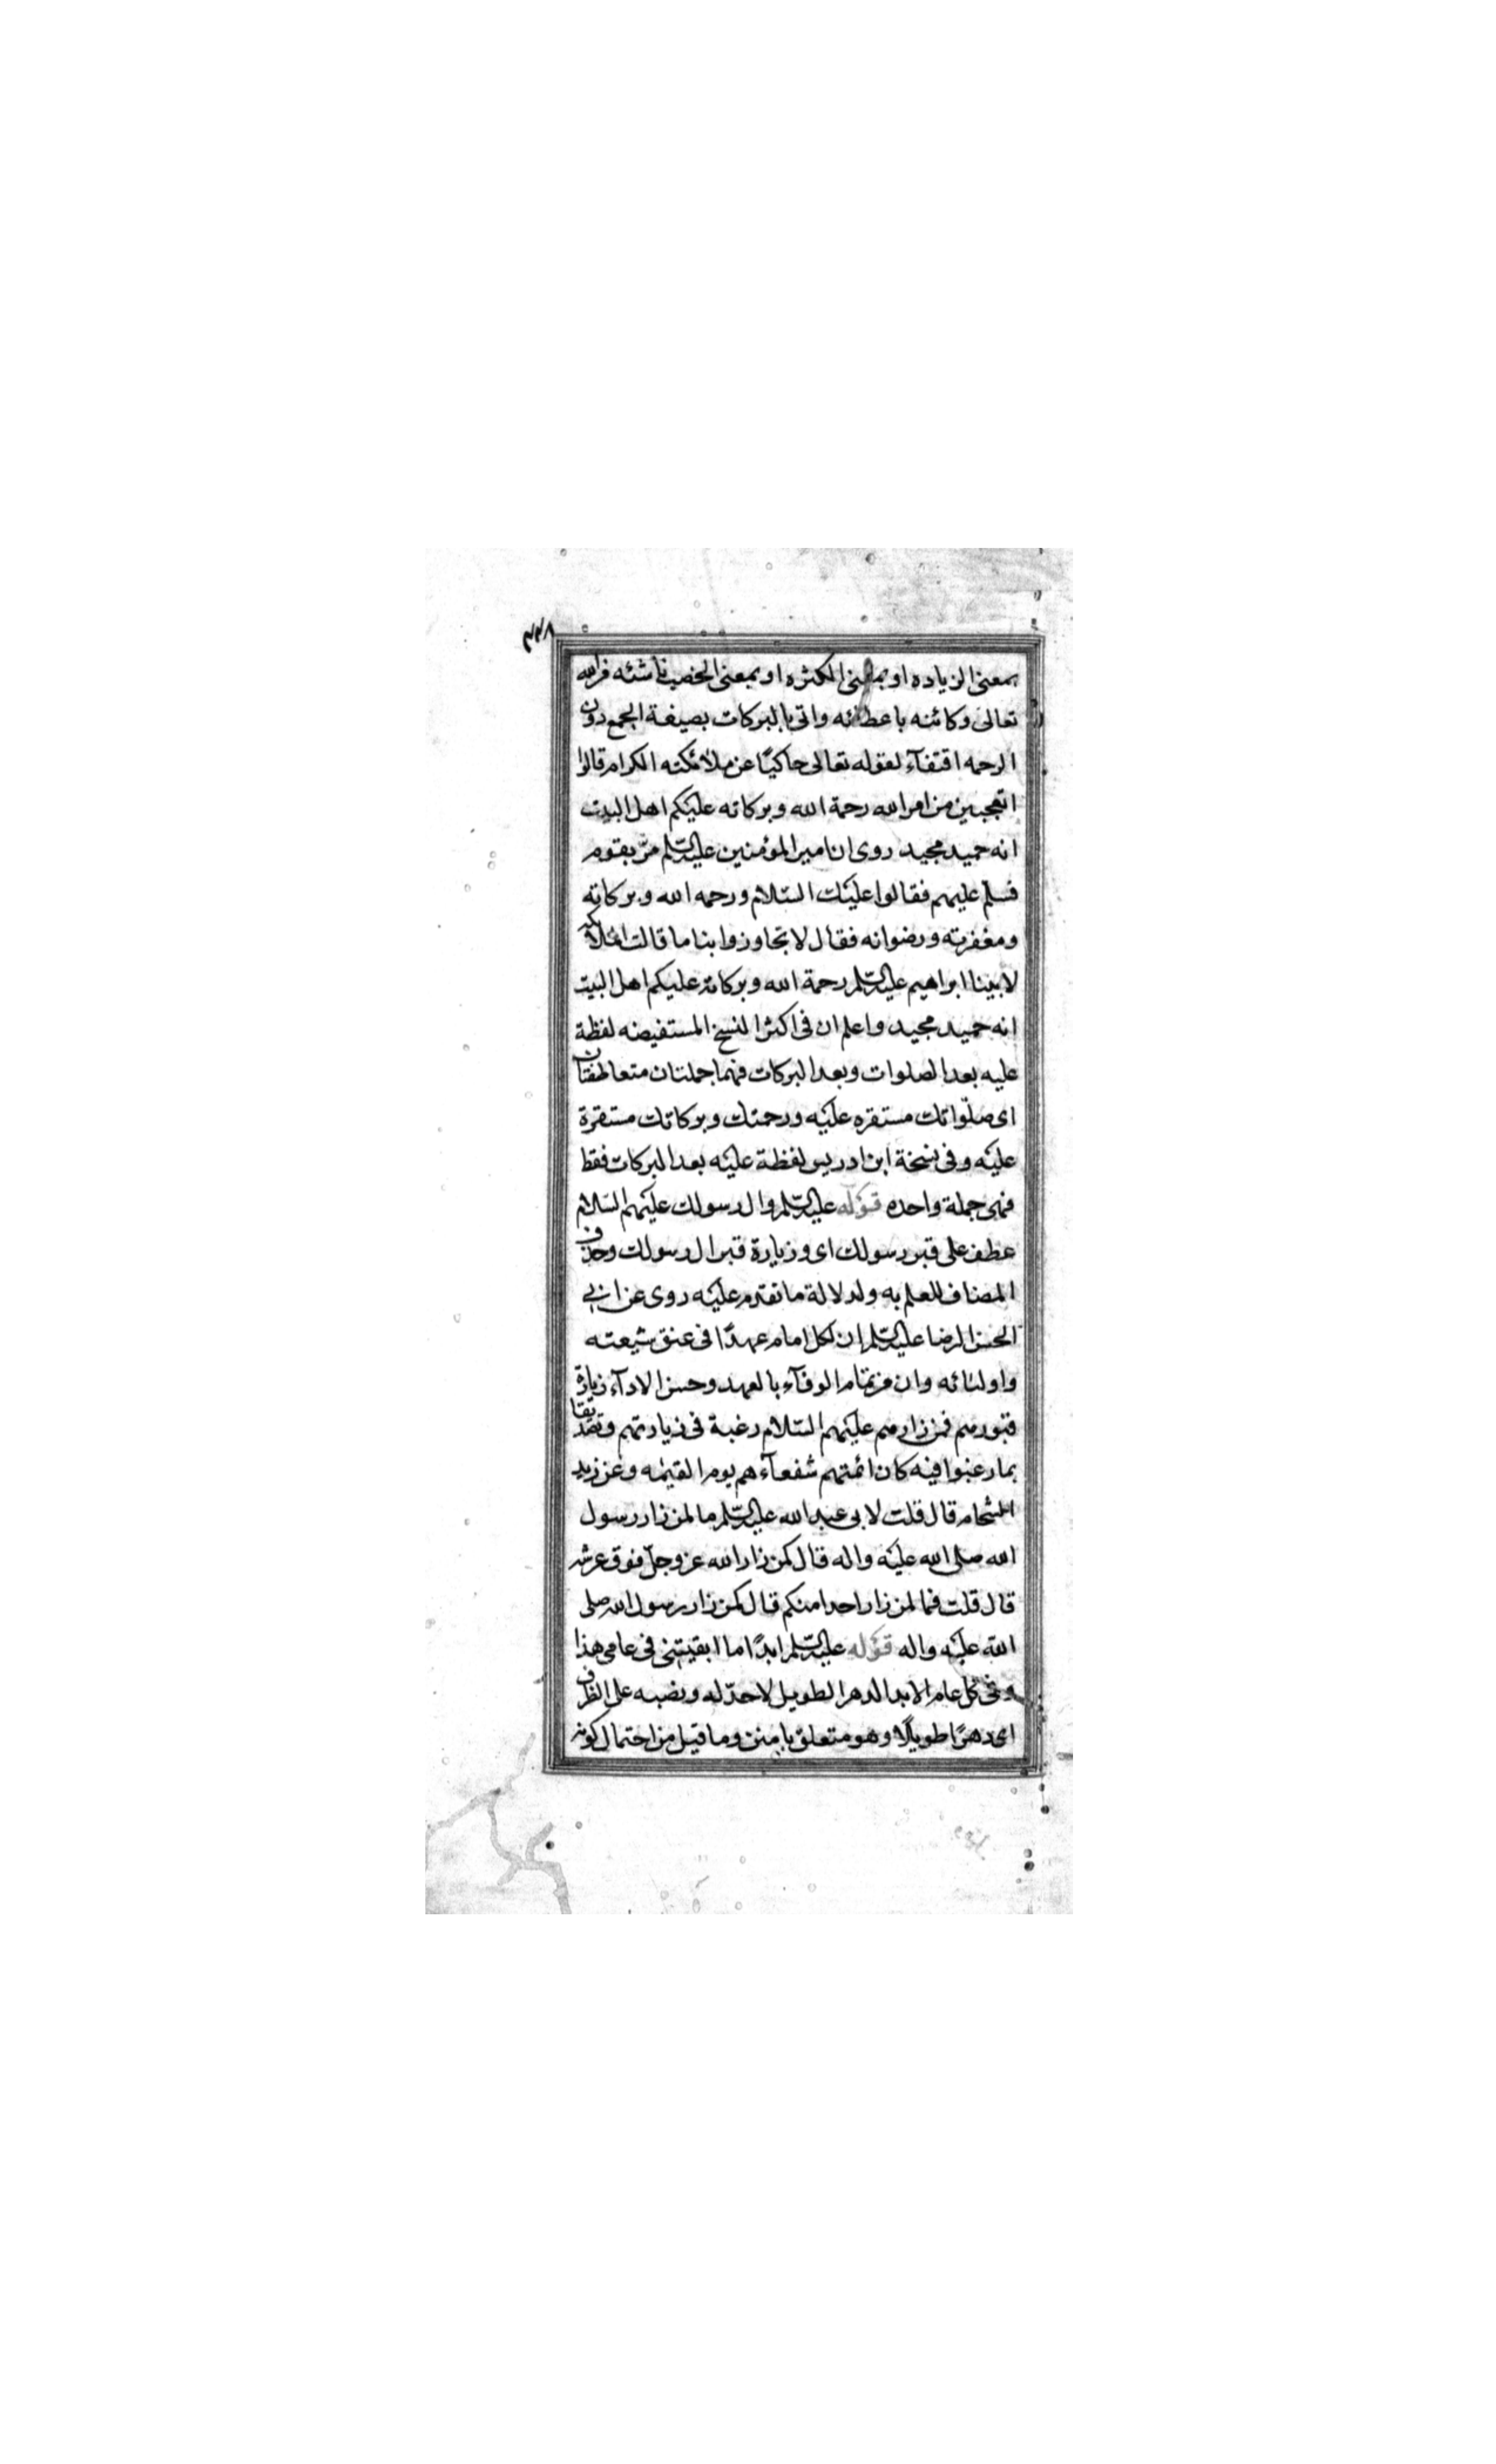 ٣٣٨
بمعنى الزياده او بمعنى الكثره او بمعنى الخصب ناشئه من الله
تعالى وكائنه باعطائه واتى بالبركات بصيغة الجمع دون
الرحمه اقتفآء لقوله تعالى حاكيًا عن ملائكته الكرام قالوا
اتعجبين من امر الله رحمة الله وبركاته عليكم اهل البيت
انه حميد مجيد روى ان امير المؤمنين عليه السّلم مرّ بقوم
فسلم عليهم فقالوا عليك السّلام ورحمه الله وبركاته
ومغفرته ورضوانه فقال لا تجاوزوا بنا ما قالت الملائكه
لابينا ابراهيم عليه السّلم رحمة الله وبركاته عليكم اهل البيت
انه حميد مجيد واعلم ان فى اكثر النسخ المستفيضه لفظة
عليه بعد الصلوات وبعد البركات فهما جملتان متعاطفتان
اى صلواتك مستقره عليه ورحمتك وبركاتك مستقرة
عليه وفى نسخة ابن ادريس لفظة عليه بعد البركات فقط
فهى جملة واحده قوله عليه السّلم وال رسولك عليهم السّلام
عطف على قبر رسولك اى وزيارة قبر ال رسولك وحذف
المضاف للعلم به ولدلالة ما تقدم عليه روى عن ابى
الحسن الرضا عليه السّلم ان لكل امام عهدًا فى عنق شيعته
واوليائه وان من تمام الوفآء بالعهد وحسن الادآء زيارة
قبورهم فمن زارهم عليهم السّلام رغبة فى زيارتهم وتصديقا
بما رغبوا فيه كان ائمتهم شفعآءهم يوم القيمه وعن زيد
الشحام قال قلت لابى عبد الله عليه السّلم ما لمن زار رسول
الله صلى الله عليه واله قال كمن زار الله عز وجلّ فوق عرشه
قال قلت فما لمن زار احدا منكم قال كمن زار رسول الله صلى
الله عليه واله قوله عليه السّلم ابدًا ما ابقيتنى فى عامى هذا
وفى كل عام الابد الدهر الطويل لا حدّ له ونصبه على الظرف
اى دهرًا طويلًا وهو متعلق بامنن وما قيل من احتمال كونه